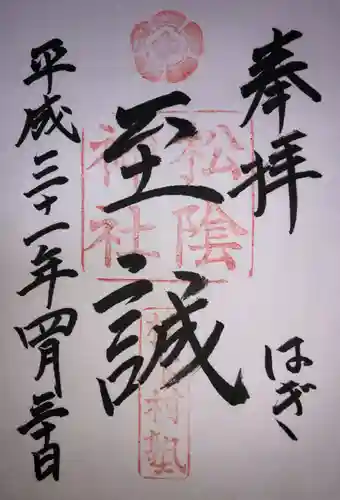 奉拝
はぎ
至誠
松陰神社
松下村塾
平成三十一年四月三十日